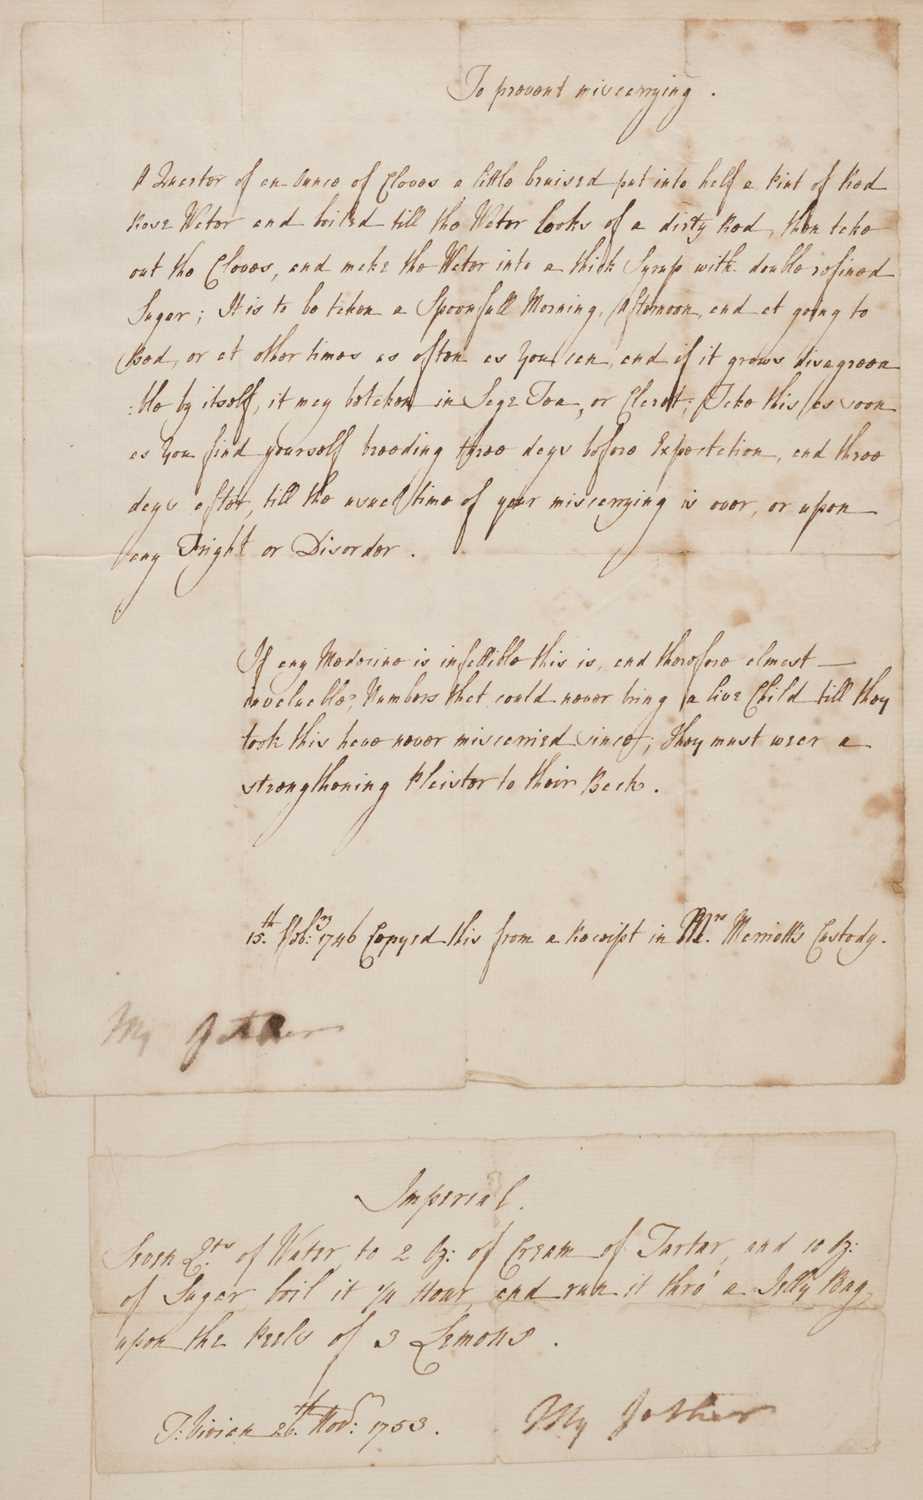 To prevent miscarrying .
A Quarter of an Ounce of Cloves a little bruised put into half a Pint of Red
Rose Water and boiled till the Water looks of a dirty Red, then take
out the Cloves, and make the Water into a thick Syrup with double refined
Sugar; It is to be taken a Spoonfull Morning, Afternoon, and at going to
Bed, or at other times as often as You can, and if it grows disagreea
:ble by itself, it may be taken in Sage Tea, or Claret; Take this as soon
as You find yourself breeding three days before Expectation, and three
days after, till the usual time of your miscarrying is over, or upon
any Fright or Disorder .
If any Medecine is infallible this is, and therefore almost
invaluable; Numbers that could never bring a live Child till they
took this have never miscarried since; They must wear a
strengthening Plaister to their Back .
15th. Febry: 1746 Copyed this from a Receipt in Mrs. Merrick's Custody .
My Father
Imperial .
Seven Qts. of Water to 2 Oz: of Cream of Tartar, and 10 Oz:
of Sugar boil it 1/4 Hour, and run it thro' a Jelly Bag,
upon the Peels of 3 Lemons .
T: Vivian 26th. Novr: 1753 .
My Father